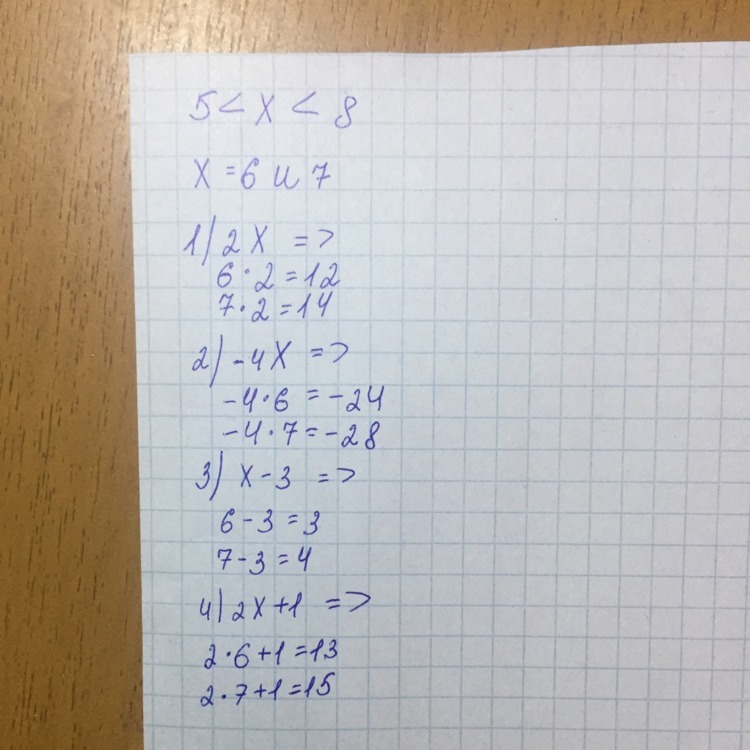 5 < x < 8
x = 6 и 7
1) 2x =>
6·2=12
7·2=14
2) -4x =>
-4·6 = -24
-4·7 = -28
3) x-3 =>
6-3=3
7-3=4
4) 2x+1 =>
2·6+1=13
2·7+1=15